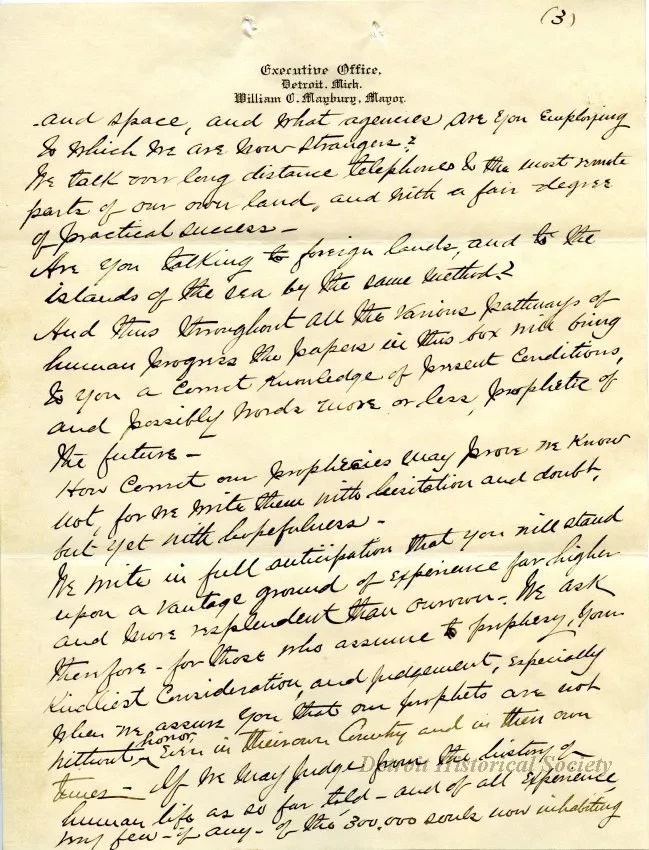 (3)
Executive Office,
Detroit, Mich.
William C. Maybury, Mayor.
and space, and what agencies are you Employing
to which we are now strangers?
We talk over long distance telephones to the most remote
parts of our own land, and with a fair degree
of practical success -
Are you talking to foreign lands, and to the
islands of the sea by the same method?
And thus throughout all the various pathways of
human progress the papers in this box will bring
to you a correct knowledge of present conditions,
and possibly words more or less, prophetic of
the future -
How correct our prophecies may prove we know
not, for we write them with hesitation and doubt,
but yet with hopefulness -
We write in full anticipation that you will stand
upon a vantage ground of experience far higher
and more resplendent than our own - We ask
therefore - for those who assume to prophesy, your
Kindliest Consideration, and judgement, especially
when we assure you that our prophets are not
without honor, Even in their own Country and in their own
times - If we may judge from the history of
human life as so far told - and of all experience
very few - if any - of the 300,000 souls now inhabiting
Detroit Historical Society